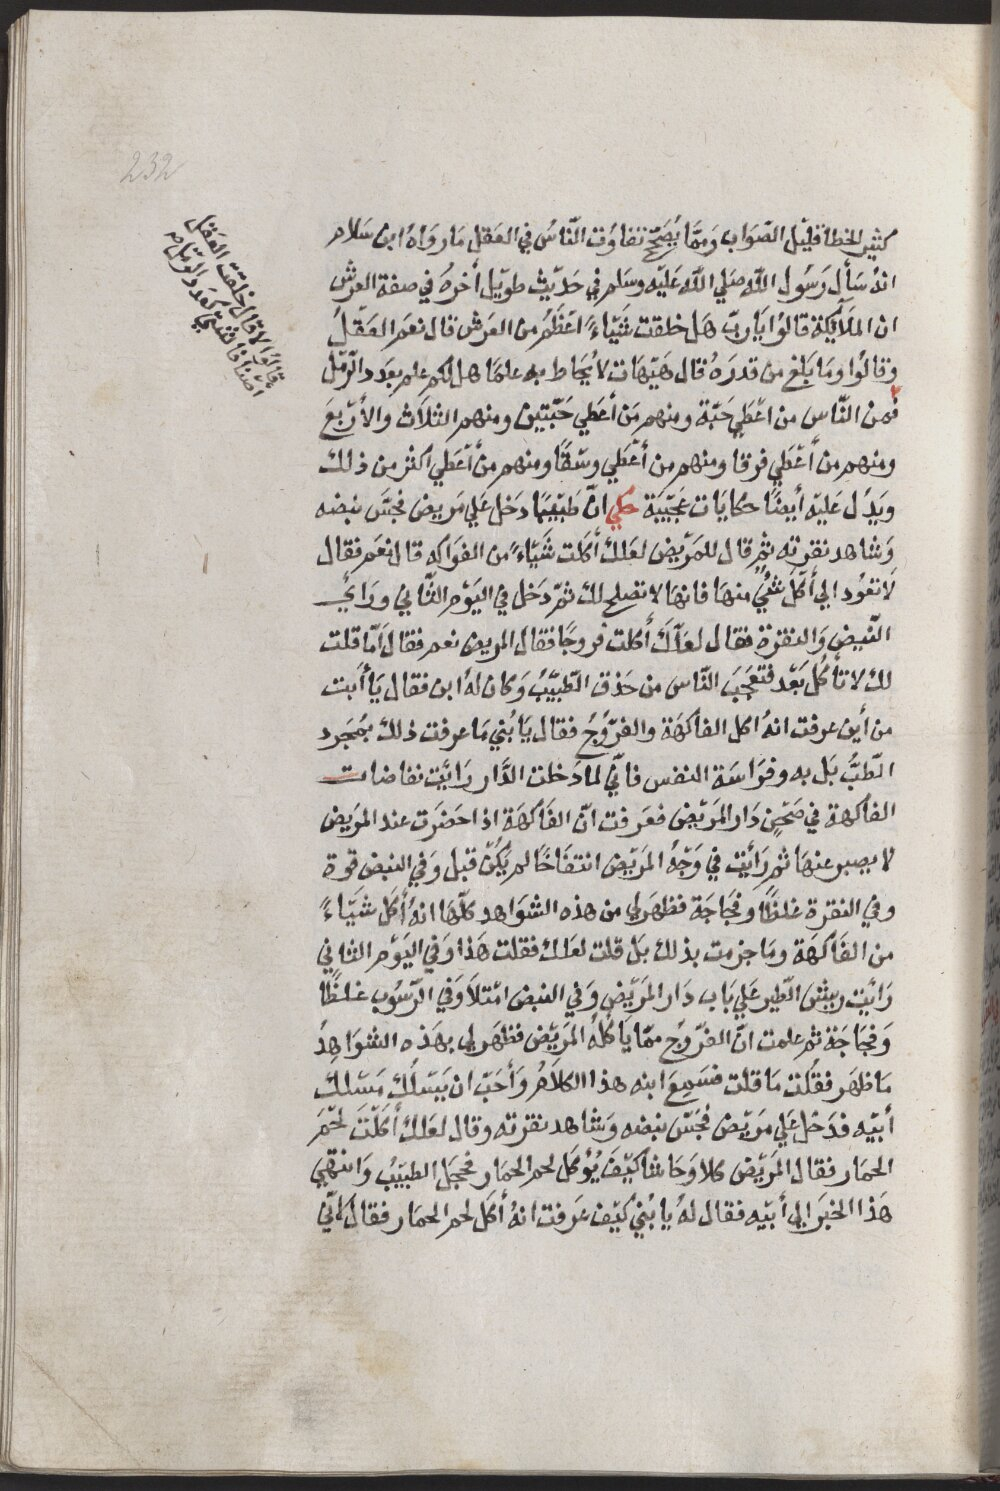 232
كثير الخطأ قليل الصَوَاب وَمّما يُصَحّح تفاوُت النّاسُ في العَقل مَا روَاهُ ابن سَلام
انهُ سَأل رَسُول اللّه صَلي اللّه عَليْه وسَلم في حَديْث طويْل أخرهُ في صفة العرش
ان المَلآئِيكة قالوُا يَاربّ هَل خلقت شَيْاءً اعْظَمُ من العَرش قال نعَم العَقْلُ
وَقالوُا ومَا بَلغ من قدرَهُ قال هَيْهَات لا يُحَاط به علمَا هل لكم علم بعَدد الرّمْل
قالوُا لا قال خلقت العَقل
اصْنافا شتي كعَدد الرّمْل صح
فمن النَّاس من اعْطَي حَبّة ومنهم مَن أعطَي حَبّتين ومنهم الثلَاث والأرْبعَ
ومنهم من أعْطَي فرقا ومنهم من أعْطَلي وسْقًا ومنهم من أعْطَلي اكثر من ذلك
وَيَدُل عَليْه أيضًا حكايَات عَجيْبَة حكي انّ طَبيْبًا دَخل عَلي مَريض فجَسّ نبضه
وَشاهد نقرته ثم قال للمَريْض لعَلك أكلت شَيْاءً من الفوَاكه قال نعَم فقال
لَا تعُود الي أكل شئ منهَا فانهَا لا تصلح لك ثمّ دَخل في اليَوْم الثّاني ورَايَ
النّبضَ وَالنقرَة فقال لعَلّكَ أكلت فروجًا فقال المريض نعم فقال أمّا قلت
لك لا تأكُل بَعْد فتعَجّبَ النّاس من حَذق الطّبيْبُ وَكان لهُ ابن فقال يَا أبت
من أين عرفت انهُ اكل الفاكهَة والفرّوُجُ فقال يَا بُني مَا عرفت ذلك بمُجَرد
الطّبُّ بَل به وفرَاسَة النفس فانّي لما دَخلت الدَّار رَايْت نفاضات
الفاكهة في صَحْن دَار المَريْض فعَرفت انّ الفَاكهَة اذا حَضَرَت عند المرَيض
لا يصبر عنهَا ثم رَأيْت في وَجْهُ المَريْض انتفَاخًا لم يَكُنّ قبل وَفي النبض قوة
وفي النقرة غلظًا وفجَاجَة فظهَر لي من هذه الشوَاهد كلّهَا انهُ أكل شَيْاءً
من الفَاكهَة ومَا جزمت بذلك بَل قلت لعَلك فقلت هَذا وَفي اليَوْم الثاني
رَايْت ريش الطّير عَلي بَاب دَار المَريْض وَفي النبض امْتلَا وَفي الرّسُوب غلظًا
وَفجَاجَة ثم علمت انّ الفرّوجُ ممّا يَاكُلهُ المَريْض فظهَر لي بهَذه الشوَاهدُ
مَا ظهَر فقُلت مَا قلت فسَمِعَ ابنه هذا الكلَامُ وَأحَبّ ان يَسْلكَ مَسْلك
أبيْه فدَخل عَلي مَريْض فجَسّ نبضه وَشاهد نقرته وقال لعَلك أكلتَ لحَم
الحمَار فقال المَريْض كلا وَحَاشا كيْفَ يُؤكل لحم الحمَار فخجل الطبيْبُ وَانتهي
هَذا الخبَر الي أبيْه فقال لهُ يا بُني كيْف عَرفت انهُ أكل لحم الحمَار فقال لأنّي